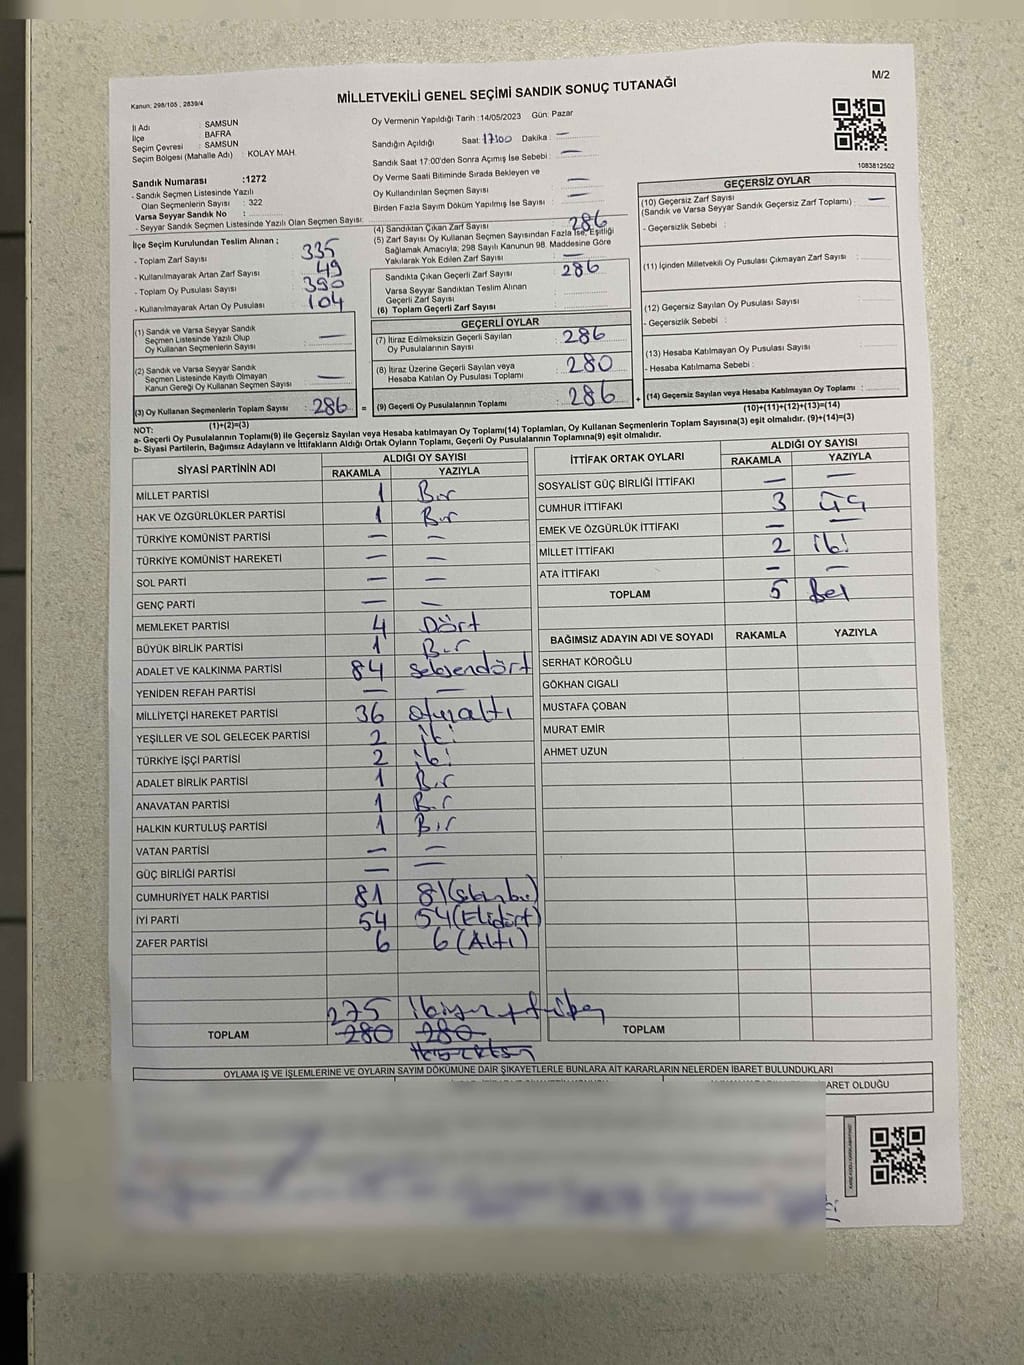 M/2
Kanun: 298/105 , 2839/4
MİLLETVEKİLİ GENEL SEÇİMİ SANDIK SONUÇ TUTANAĞI
İl Adı : SAMSUN
İlçe : BAFRA
Seçim Çevresi : SAMSUN
Seçim Bölgesi (Mahalle Adı) : KOLAY MAH.
Sandık Numarası :1272
- Sandık Seçmen Listesinde Yazılı
Olan Seçmenlerin Sayısı : 322
Varsa Seyyar Sandık No :
- Seyyar Sandık Seçmen Listesinde Yazılı Olan Seçmen Sayısı:
İlçe Seçim Kurulundan Teslim Alınan ;
- Toplam Zarf Sayısı : 335
- Kullanılmayarak Artan Zarf Sayısı : 49
- Toplam Oy Pusulası Sayısı : 390
- Kullanılmayarak Artan Oy Pusulası : 104
(1) Sandık ve Varsa Seyyar Sandık
Seçmen Listesinde Yazılı Olup
Oy Kullanan Seçmenlerin Sayısı : —
(2) Sandık ve Varsa Seyyar Sandık
Seçmen Listesinde Kayıtlı Olmayan
Kanun Gereği Oy Kullanan Seçmen Sayısı : —
(3) Oy Kullanan Seçmenlerin Toplam Sayısı : 286 =
(1)+(2)=(3)
Oy Vermenin Yapıldığı Tarih :14/05/2023 Gün: Pazar
Sandığın Açıldığı Saat: 17:00 Dakika : —
Sandık Saat 17:00'den Sonra Açımış İse Sebebi : —
Oy Verme Saati Bitiminde Sırada Bekleyen ve
Oy Kullandırılan Seçmen Sayısı : —
Birden Fazla Sayım Döküm Yapılmış İse Sayısı : —
(4) Sandıktan Çıkan Zarf Sayısı : 286
(5) Zarf Sayısı Oy Kullanan Seçmen Sayısından Fazla İse, Eşitliği
Sağlamak Amacıyla; 298 Sayılı Kanunun 98. Maddesine Göre
Yakılarak Yok Edilen Zarf Sayısı : —
Sandıkta Çıkan Geçerli Zarf Sayısı : 286
Varsa Seyyar Sandıktan Teslim Alınan
Geçerli Zarf Sayısı :
(6) Toplam Geçerli Zarf Sayısı :
GEÇERLİ OYLAR
(7) İtiraz Edilmeksizin Geçerli Sayılan
Oy Pusulalarının Sayısı : 286
(8) İtiraz Üzerine Geçerli Sayılan veya
Hesaba Katılan Oy Pusulası Toplamı : 280
(9) Geçerli Oy Pusulalarının Toplamı : 286 +
1083812502
GEÇERSİZ OYLAR
(10) Geçersiz Zarf Sayısı
(Sandık ve Varsa Seyyar Sandık Geçersiz Zarf Toplamı) : —
- Geçersizlik Sebebi :
(11) İçinden Milletvekili Oy Pusulası Çıkmayan Zarf Sayısı :
(12) Geçersiz Sayılan Oy Pusulası Sayısı :
- Geçersizlik Sebebi :
(13) Hesaba Katılmayan Oy Pusulası Sayısı :
- Hesaba Katılmama Sebebi :
(14) Geçersiz Sayılan veya Hesaba Katılmayan Oy Toplamı :
(10)+(11)+(12)+(13)=(14)
NOT:
a- Geçerli Oy Pusulalarının Toplamı(9) ile Geçersiz Sayılan veya Hesaba Katılmayan Oy Toplamı(14) Toplamları, Oy Kullanan Seçmenlerin Toplam Sayısına(3) eşit olmalıdır. (9)+(14)=(3)
b- Siyasi Partilerin, Bağımsız Adayların ve İttifakların Aldığı Ortak Oyların Toplamı, Geçerli Oy Pusulalarının Toplamına(9) eşit olmalıdır.
SİYASİ PARTİNİN ADI ALDIĞI OY SAYISI
RAKAMLA YAZIYLA
MİLLET PARTİSİ 1 Bir
HAK VE ÖZGÜRLÜKLER PARTİSİ 1 Bir
TÜRKİYE KOMÜNİST PARTİSİ — —
TÜRKİYE KOMÜNİST HAREKETİ — —
SOL PARTİ — —
GENÇ PARTİ — —
MEMLEKET PARTİSİ 4 Dört
BÜYÜK BİRLİK PARTİSİ 1 Bir
ADALET VE KALKINMA PARTİSİ 84 seksendört
YENİDEN REFAH PARTİSİ — —
MİLLİYETÇİ HAREKET PARTİSİ 36 otuzaltı
YEŞİLLER VE SOL GELECEK PARTİSİ 2 iki
TÜRKİYE İŞÇİ PARTİSİ 2 iki
ADALET BİRLİK PARTİSİ 1 Bir
ANAVATAN PARTİSİ 1 Bir
HALKIN KURTULUŞ PARTİSİ 1 Bir
VATAN PARTİSİ — —
GÜÇ BİRLİĞİ PARTİSİ — —
CUMHURİYET HALK PARTİSİ 81 81
İYİ PARTİ 54 54(Ellidört)
ZAFER PARTİSİ 6 6 (Altı)
275
TOPLAM 280 280
İTTİFAK ORTAK OYLARI ALDIĞI OY SAYISI
RAKAMLA YAZIYLA
SOSYALİST GÜÇ BİRLİĞİ İTTİFAKI — —
CUMHUR İTTİFAKI 3 üç
EMEK VE ÖZGÜRLÜK İTTİFAKI — —
MİLLET İTTİFAKI 2 iki
ATA İTTİFAKI — —
TOPLAM 5 Beş
BAĞIMSIZ ADAYIN ADI VE SOYADI RAKAMLA YAZIYLA
SERHAT KÖROĞLU
GÖKHAN CIGALI
MUSTAFA ÇOBAN
MURAT EMİR
AHMET UZUN
TOPLAM
OYLAMA İŞ VE İŞLEMLERİNE VE OYLARIN SAYIM DÖKÜMÜNE DAİR ŞİKAYETLERLE BUNLARA AİT KARARLARIN NELERDEN İBARET BULUNDUKLARI
ARET OLDUĞU